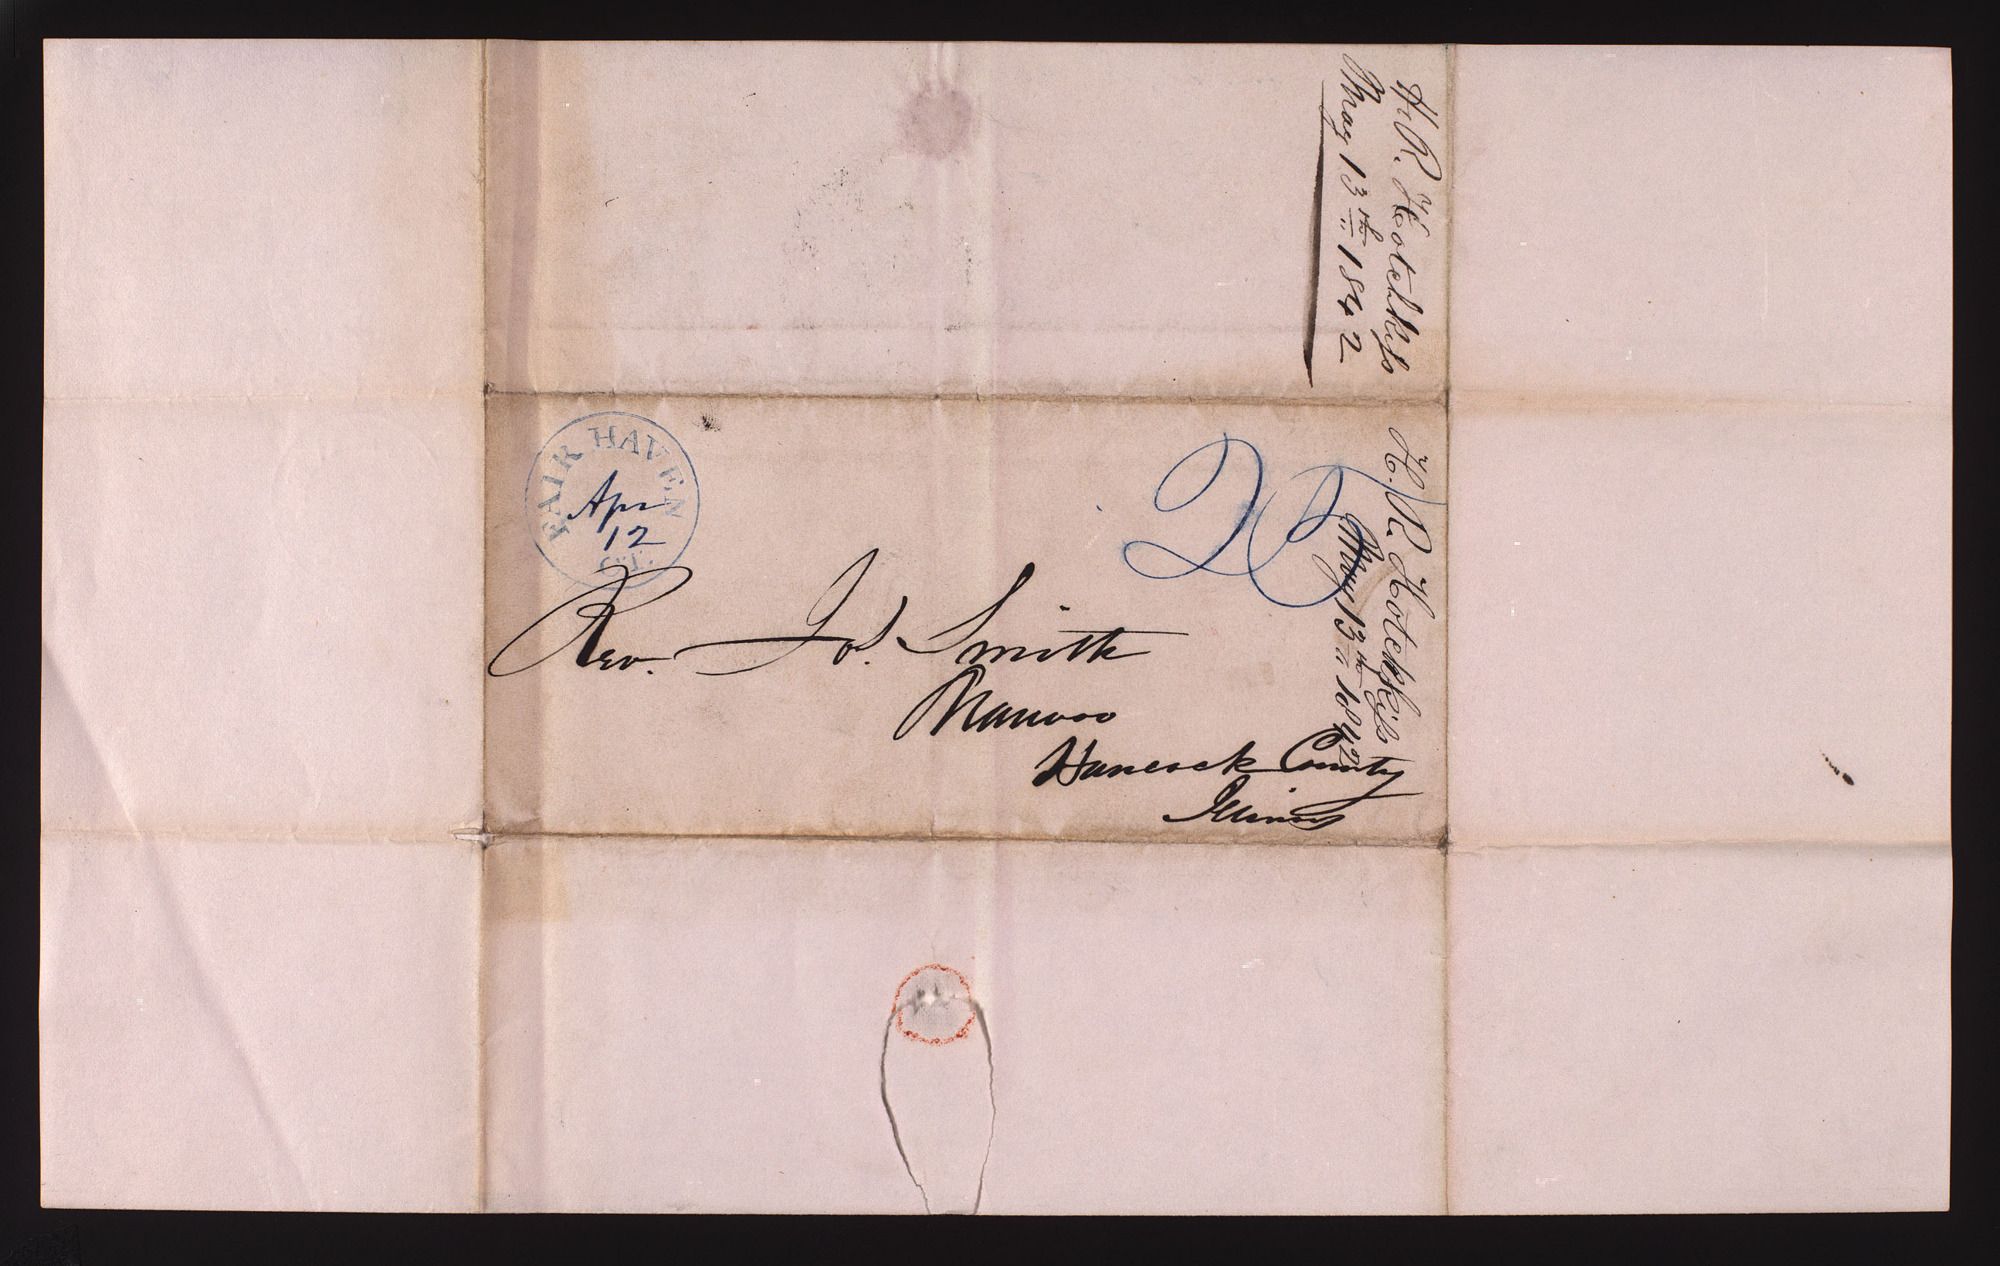 H. R. Hotchkiss
May 13th 1842
FAIR HAVEN
Apr
12
CT.
25
H. R. Hotchkiss
May 13th 1842
Rev. Jos. Smith
Nauvoo
Hancock County
Illinois